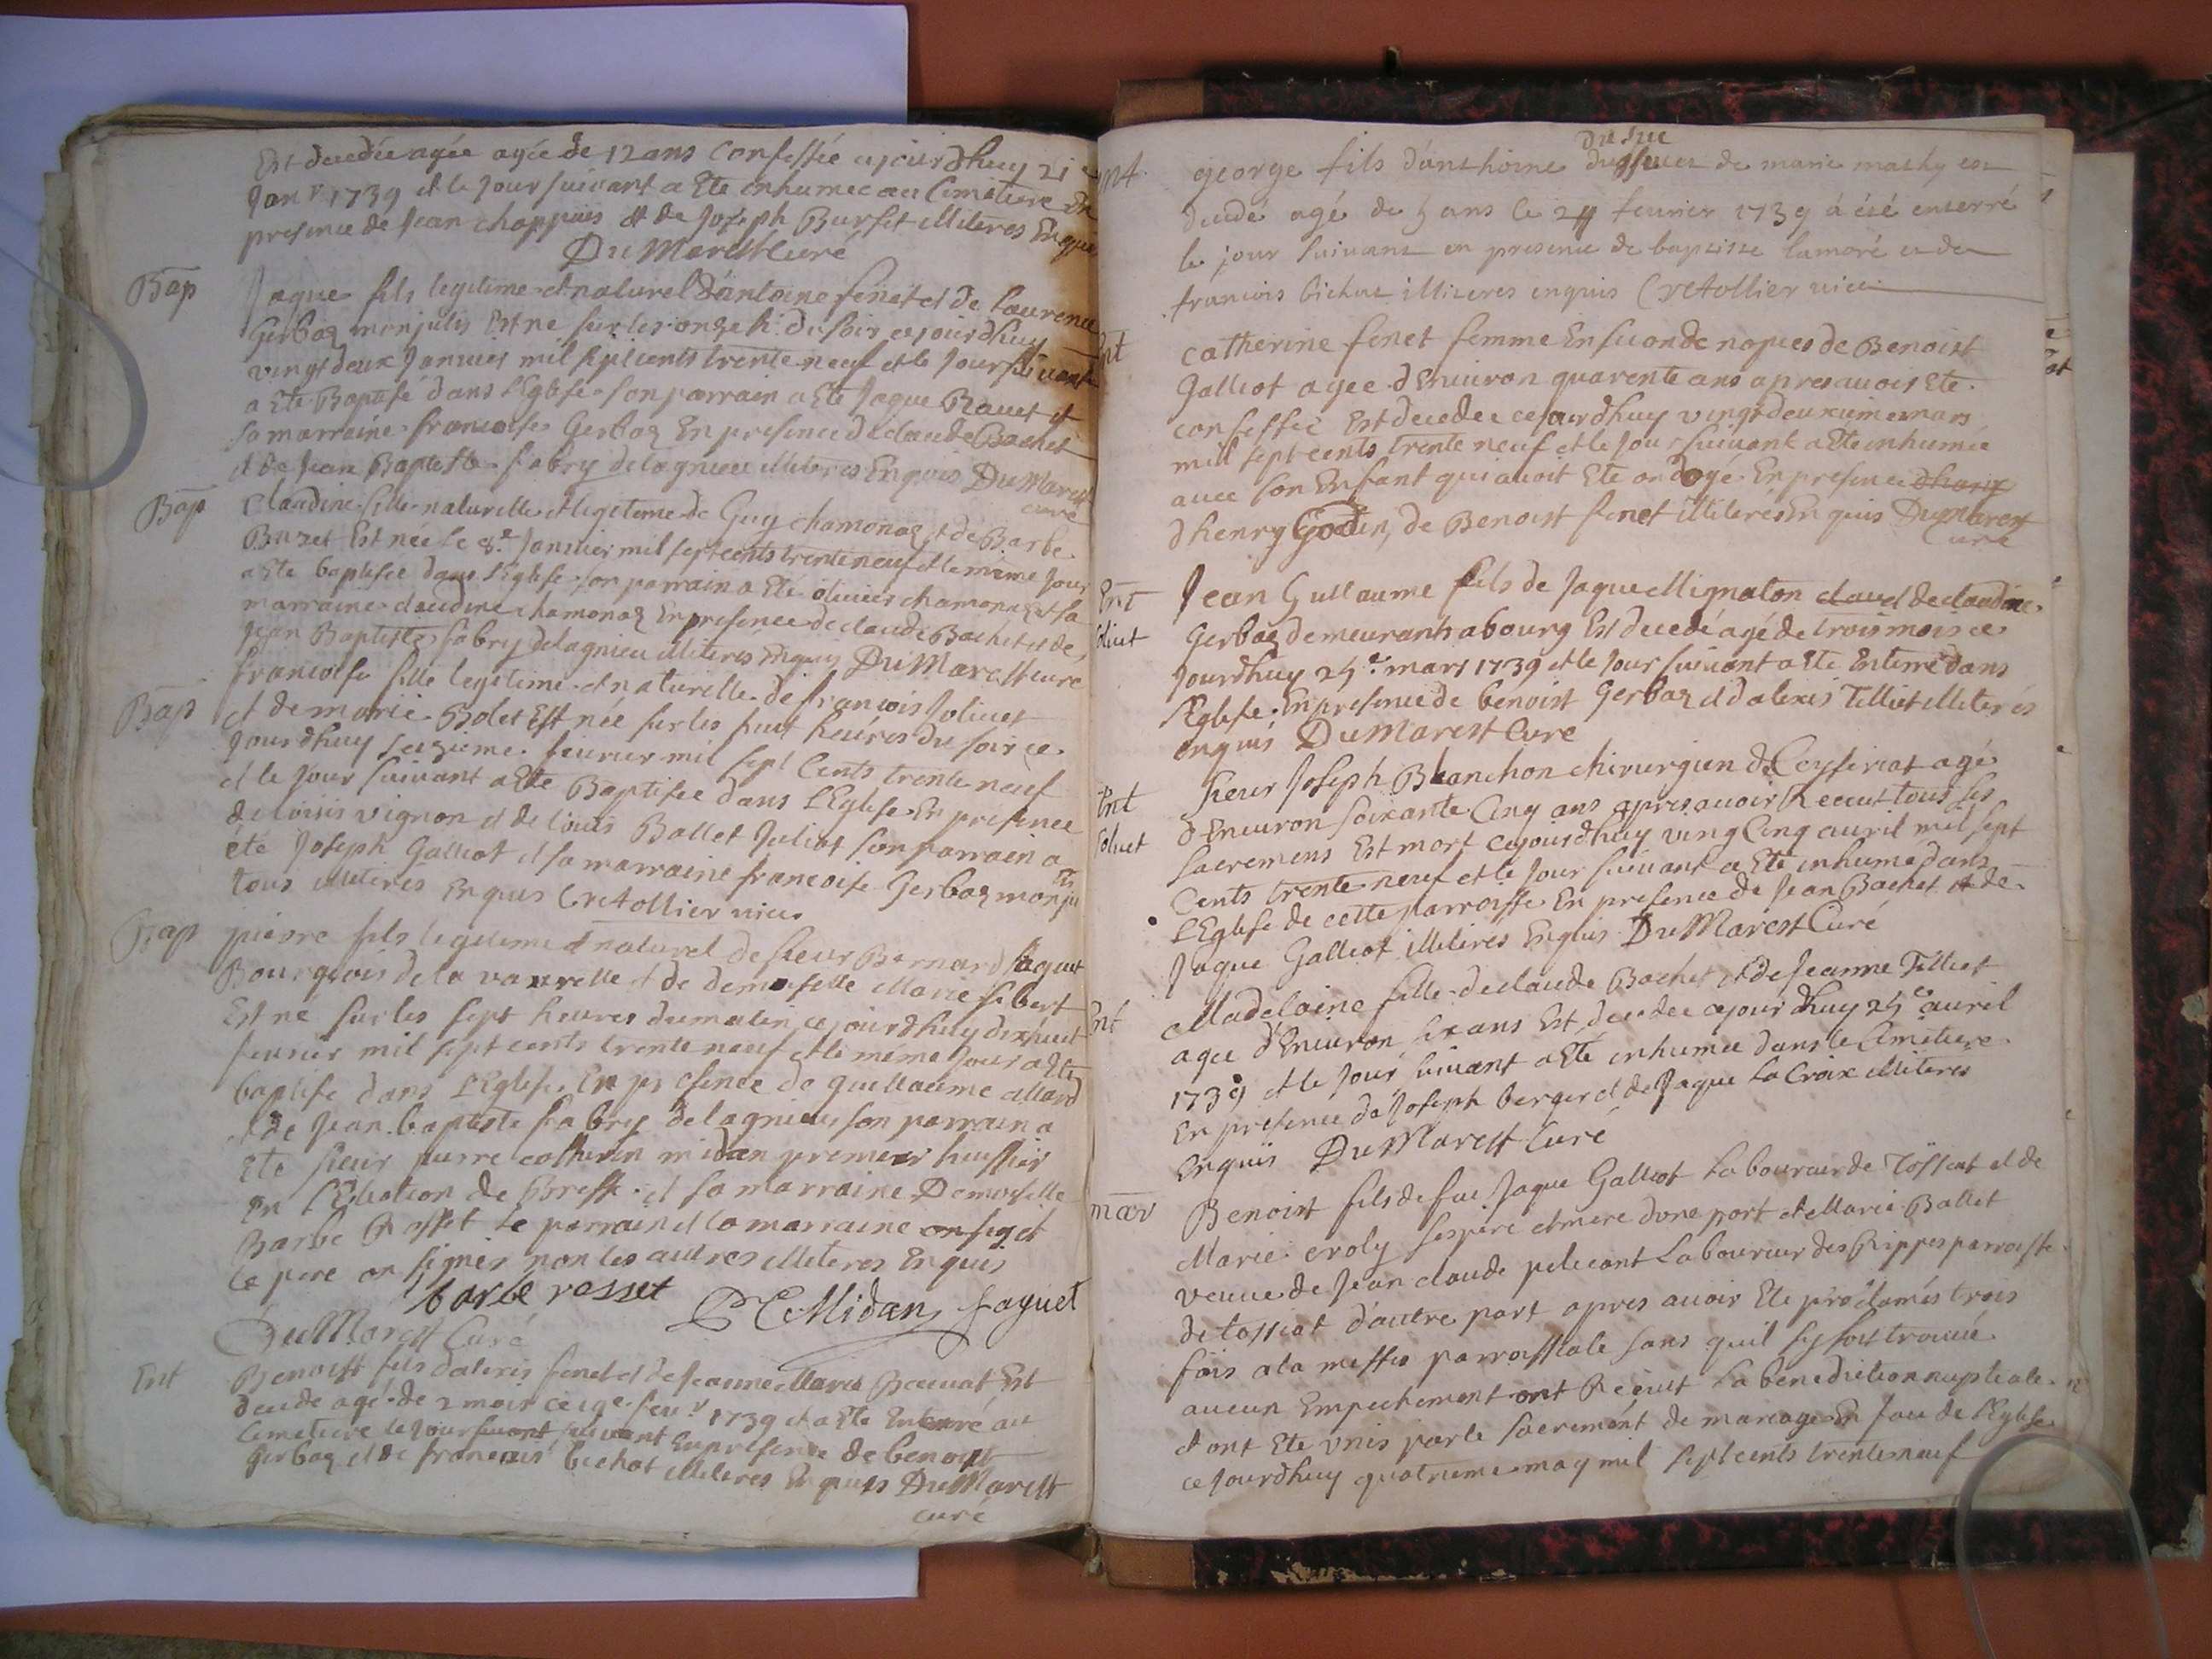 Est decedée agée agée de 12 ans Confessée cejourdhuy 21e
Janvr 1739 et le Jour suivant a Ete inhumée au Cimetiere en
presence de Jean chappuis et de Joseph Burfet illiteres Enquis
DuMarest Curé
Bap
Jaque fils legitime et naturel d'antoine fenet et de Laurence
Gerbaz monjulis Est ne sur les onze h. du soir cejourdhuy
vingt deux Janvier mil sept cents trente neuf et le Jour suivant
a Ete Baptisé dans l'Eglise son parrain a Eté Jaque Ravet et
sa marraine francoise Gerbaz En presence de claude Bachet
et de Jean Baptiste fabry delagnieu illiteres Enquis DuMarest
curé
Bap
Claudine fille naturelle et legitime de Guy chamonaz et de Barbe
Buzet Est née le 8e Janvier mil sept cents trente neuf et le même Jour
a Ete baptisée dans l'Eglise son parrain a Eté olivier chamonaz et sa
marraine claudine chamonaz En presence de claude Bachet et de
Jean Baptiste fabry delagnieu illiteres Enquis DuMarest curé
Bap
francoise fille legitime et naturelle de francois Jolivet
et de marie Bolet Est née sur les huit heures du soir ce
Jourdhuy seizieme fevrier mil sept Cents trente neuf
et le Jour suivant a Ete Baptisée dans l'Eglise En presence
de loisis vignon et de louis Ballet Juliat son parrain a
été Joseph Galliot et sa marraine francoise Gerbaz monju
lis
tous illiteres Enquis Cretollier vicc.
Bap
pierre fils legitime et naturel de sieur Bernard faguet
Bourgeois de la vavrette et de demoiselle Marie sibert
Est ne sur les sept heures du matin cejourdhuy dixhuit
fevrier mil sept cents trente neuf et le meme Jour a Ete
baptise dans l'Eglise En presence de guillaume allard
et de Jean baptiste fabry delagnieu son parrain a
Ete sieur pierre catherin midan premier huissier
En l'Election de Bresse et sa marraine Demoiselle
Barbe Rosset Le parrain et la marraine onsig et
le pere on signés non les autres illiteres Enquis
barbe rosset PCMidan faguet
DuMarest Curé
Ent
Benoist fils d'alexis fenet et de Jeanne Marie Bauvat Est
decede agé de 2 mois ce 19e fevr 1739 et a Ete Enterré au
Cimetiere le Jour suivant suivant En presence de benoist
Gerbaz et de francois bichat illiteres Enquis DuMarest
curé
ent.
du suc
george fils d'anthoine dussuc et de marie mathy est
decedé agé de 5 ans le 24 fevrier 1739 à été enterré
le jour suivant en presence de baptiste lamoré et de
francois bichat illiteres enquis Cretollier vicc.
Ent
catherine fenet femme En seconde nopces de Benoist
Galliot agee d'Environ quarente ans apres avoir Ete
confessée Est decedee cejourdhuy vingt deuxieme mars
mil sept cents trente neuf et le Jour suivant a Ete inhumée
avec son Enfant qui avoit Ete ondoyé En presence
dhenry Godin, de Benoist fenet illiterés Enquis Dumarest
Curé
Ent
solvet
Jean Gullaume fils de Jaque Mignaton claud de claudine
Gerbaz demeurants a bourg Est decedé agé de trois mois ce
Jourdhuy 25e mars 1739 et le Jour suivant a Ete Enterré dans
l'Eglise En presence de benoist Gerbaz et d'alexis Tilliet illiterés
enquis DuMarest Curé
Ent
solvet
sieur Joseph Blanchon chirurgien de Ceyseriat agé
d'Environ soixante Cinq ans apres avoir Receut tous ses
sacremens Est mort cejourdhuy vingt Cinq avril mil sept
Cents trente neuf et le Jour suivant a Ete inhumé dans
l'Eglise de cette parroisse En presence de Jean Bachet et de
Jaque Galliot illiteres Enquis DuMarest Curé
Ent
Madelaine fille de claude Bachet et de Jeanne Tilliet
agee d'Environ six ans Est decedee cejourdhuy 25e avril
1739 et le Jour suivant a Eté inhumée dans le Cimetiere
En presence de Joseph berger et de Jaque La Croix illiteres
Enquis DuMarest Curé
mar
Benoist fils de fue Jaque Galliot Laboureur de Tossiat et de
Marie croly ses pere et mere d'une part et Marie Ballet
veuve de Jean claude pelicant Laboureur des Rippes parroisse
de tossiat d'autre part apres avoir Ete proclamés trois
fois a la messe parroissiale sans quil sy soit trouvé
aucun Empechement ont Receut la benediction nuptiale
et ont Ete vnis par le sacrement de mariage En face de l'Eglise
cejourdhuy quatrieme may mil sept cents trente neuf